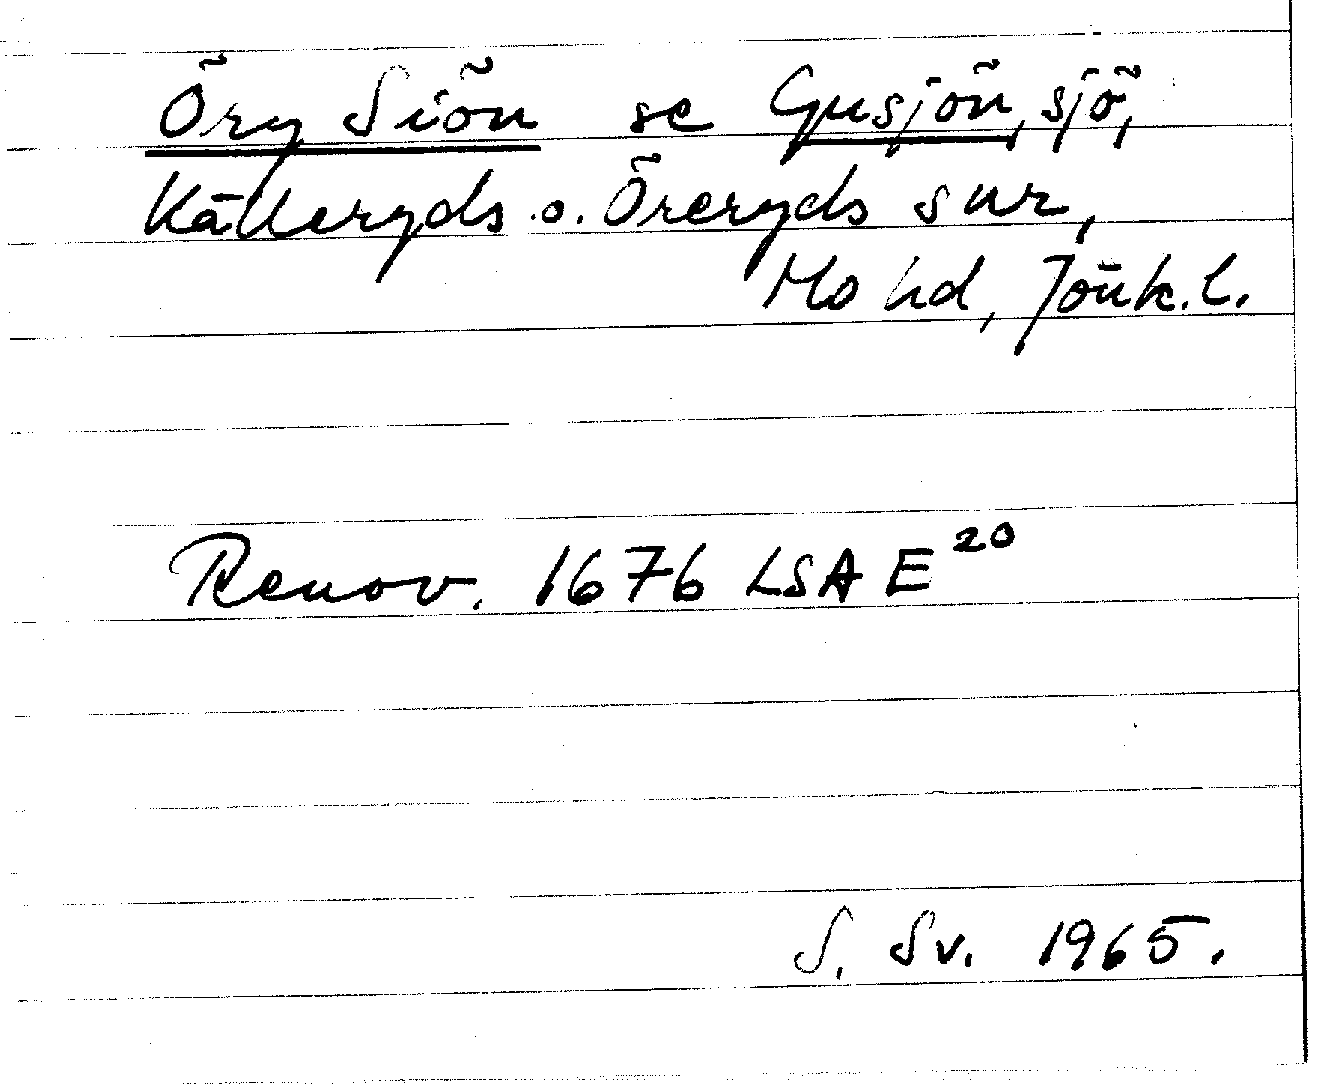 Öry Siön se Gusjön, sjö,
Kålleryds o. Öreryds snr,
Mo hd, Jönk.l.
Renov. 1676 LSA E²⁰
S. Sv. 1965.